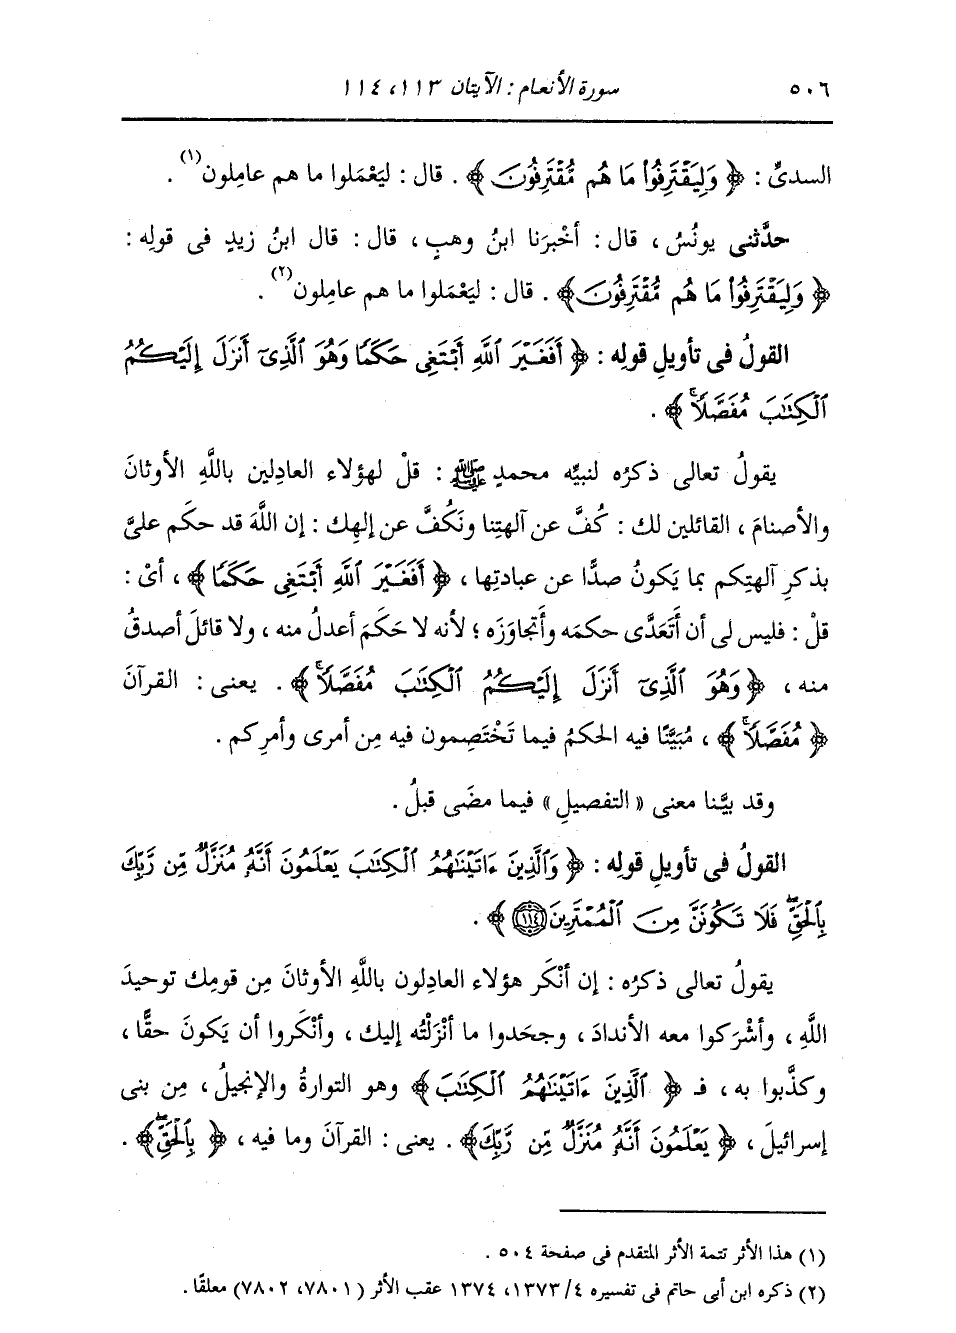 ٥٠٦ سورة الأنعام : الآيتان ١١٣، ١١٤
السدىِّ : ﴿ وَلِيَقْتَرِفُواْ مَا هُم مُّقْتَرِفُونَ ﴾ . قال : ليَعْمَلوا ما هم عامِلون(١) .
حدَّثنى يونُسُ ، قال : أخْبرَنا ابنُ وهبٍ ، قال : قال ابنُ زيدٍ فى قولِه :
﴿ وَلِيَقْتَرِفُواْ مَا هُم مُّقْتَرِفُونَ ﴾ . قال : ليَعْمَلوا ما هم عامِلون(٢) .
القولُ فى تأويلِ قولِه : ﴿ أَفَغَيْرَ ٱللَّهِ أَبْتَغِى حَكَمًا وَهُوَ ٱلَّذِىٓ أَنزَلَ إِلَيْكُمُ
ٱلْكِتَٰبَ مُفَصَّلًاۚ ﴾ .
يقولُ تعالى ذكرُه لنبيِّه محمدٍ ﷺ : قلْ لهؤلاء العادِلين باللَّهِ الأوثانَ
والأصنامَ ، القائلين لك : كُفَّ عن آلهتِنا ونَكُفَّ عن إلهِك : إن اللَّهَ قد حكَم علىَّ
بذكرِ آلهتِكم بما يَكونُ صدًّا عن عبادتِها ، ﴿ أَفَغَيْرَ ٱللَّهِ أَبْتَغِى حَكَمًا ﴾ ، أىْ :
قلْ : فليس لى أن أَتَعَدَّى حكمَه وأَتجاوَزَه ؛ لأنه لا حَكَمَ أعدلُ منه ، ولا قائلَ أصدقُ
منه ، ﴿ وَهُوَ ٱلَّذِىٓ أَنزَلَ إِلَيْكُمُ ٱلْكِتَٰبَ مُفَصَّلًاۚ ﴾ . يعنى : القرآنَ
﴿ مُفَصَّلًاۚ ﴾ ، مُبَيَّنًا فيه الحكمُ فيما تَخْتَصِمون فيه مِن أمرى وأمرِكم .
وقد بيَّنا معنى « التفصيلِ » فيما مضَى قبلُ .
القولُ فى تأويلِ قولِه : ﴿ وَٱلَّذِينَ ءَاتَيْنَٰهُمُ ٱلْكِتَٰبَ يَعْلَمُونَ أَنَّهُۥ مُنَزَّلٌ مِّن رَّبِّكَ
بِٱلْحَقِّۖ فَلَا تَكُونَنَّ مِنَ ٱلْمُمْتَرِينَ ١١٤ ﴾ .
يقولُ تعالى ذكرُه : إن أنْكَر هؤلاء العادِلون باللَّهِ الأوثانَ مِن قومِك توحيدَ
اللَّهِ ، وأشْرَكوا معه الأندادَ ، وجحَدوا ما أنْزَلْتُه إليك ، وأنْكَروا أن يَكونَ حقًّا ،
وكذَّبوا به ، فـ ﴿ ٱلَّذِينَ ءَاتَيْنَٰهُمُ ٱلْكِتَٰبَ ﴾ وهو التوارةُ والإنجيلُ ، مِن بنى
إسرائيلَ ، ﴿ يَعْلَمُونَ أَنَّهُۥ مُنَزَّلٌ مِّن رَّبِّكَ ﴾ . يعنى : القرآنَ وما فيه ، ﴿ بِٱلْحَقِّۖ ﴾ .
(١) هذا الأثر تتمة الأثر المتقدم فى صفحة ٥٠٤ .
(٢) ذكره ابن أبى حاتم فى تفسيره ٤/ ١٣٧٣، ١٣٧٤ عقب الأثر (٧٨٠١، ٧٨٠٢) معلقًا .